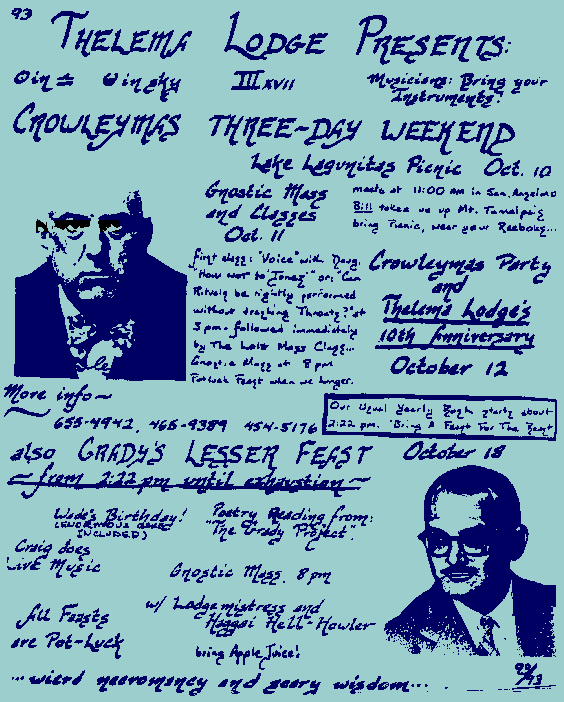 93
THELEMA LODGE PRESENTS:
III xvii
Musicians: Bring your
Instruments!
CROWLEYMAS THREE-DAY WEEKEND
Lake Lagunitas Picnic Oct. 10
meets at 11:00 am in San Anselmo
Bill takes us up Mt. Tamalpais
bring Picnic, wear your Reeboks...
Gnostic Mass
and Classes
Oct. 11
first class: "Voice" with Doug.
"How not to 'Jones'" or: "Can
Rituals be rightly performed
without trashing Throats?" at
5 pm - followed immediately
by The Late Mass Class...
Gnostic Mass at 8 pm
Potluck Feast when we hunger.
Crowleymas Party
and
Thelema Lodge's
10th Anniversary
October 12
Our Usual Yearly Bash starts about
2:22 pm. Bring A Feast For The Beast
More info~
655-4942, 465-9389 454-5176
also GRADY'S LESSER FEAST October 18
~from 2:22 pm until exhaustion~
Wade's Birthday!
INCLUDED)
Poetry Reading from:
"The Grady Project".
Craig does
LivE Music
Gnostic Mass, 8 pm
w/ Lodgemistress and
Haggai Hell-Howler
All Feasts
are Pot-Luck
bring Apple Juice!
...wierd necromancy and scary wisdom...
93/93